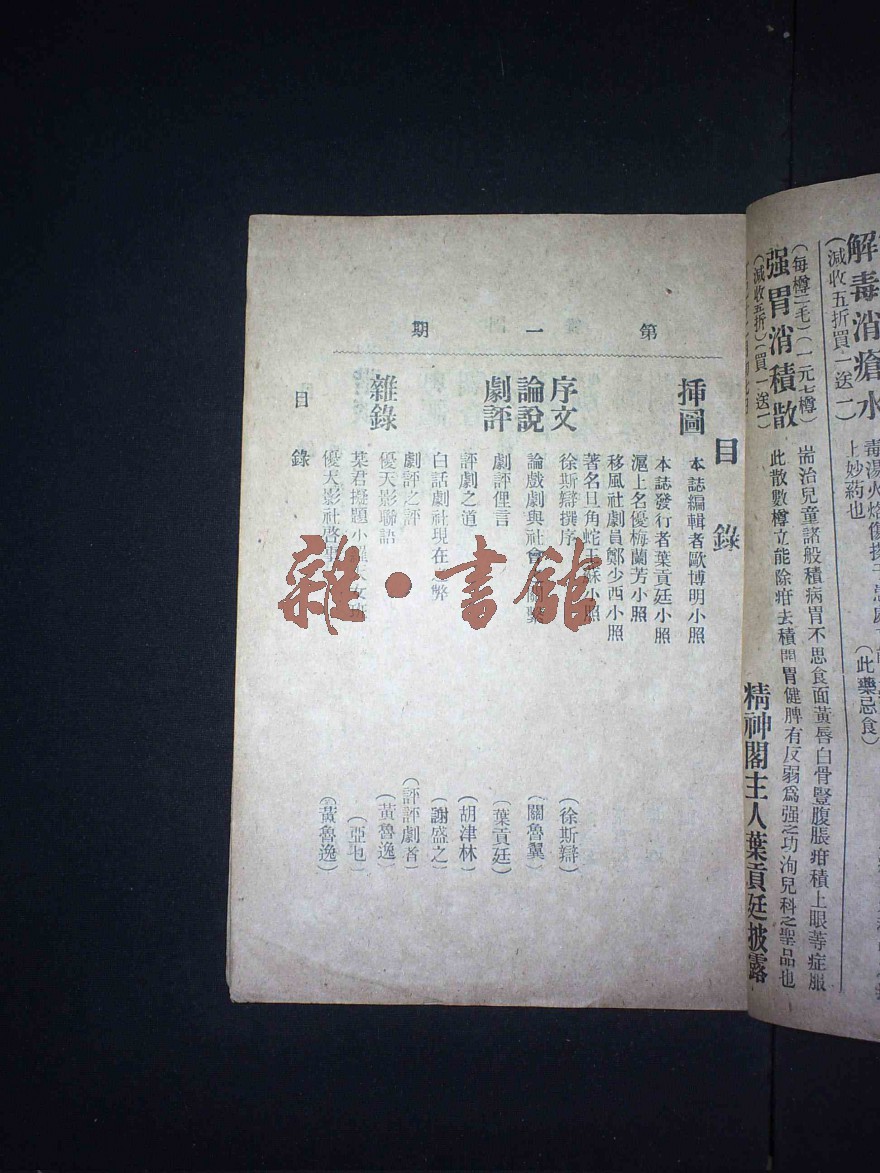 解毒消瘡水
(減收五折買一送一)
上妙葯也
(此藥忌食)
(每樽二毛)(一元七樽)
强胃消積散
(減收五折)(買一送一)
耑治兒童諸般積病胃不思食面黃唇白骨豎腹脹疳積上眼等症服
此散數樽立能除疳去積開胃健脾有反弱爲强之功洵兒科之聖品也
精神閣主人葉貢廷披露
第一期
目錄
挿圖
本誌編輯者歐博明小照
本誌發行者葉貢廷小照
滬上名優梅蘭芳小照
移風社劇員鄭少西小照
著名旦角蛇王蘇小照
序文
徐斯辯撰序 (徐斯辯)
論說
論戲劇與社會 (關魯翼)
劇評
劇評俚言 (葉貢廷)
評劇之道 (胡津林)
白話劇社現在 弊 (謝盛之)
劇評之評 (評評劇者)
雜錄
優天影聯語 (黃魯逸)
某君擬題小 (亞乜)
優天影社啓 (黃魯逸)
目錄
雜·書館